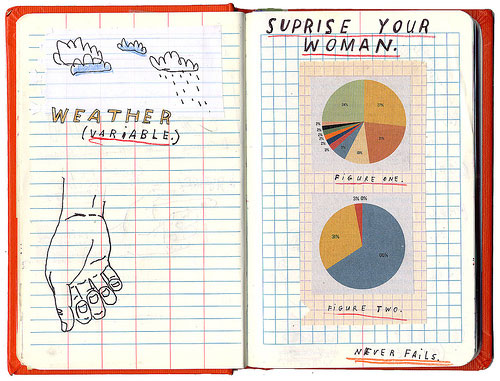 WEATHER
(VARiABLE.)
SUPRISE YOUR
WOMAN.
24%
27%
FiGURE ONE.
3% 0%
31%
FiGURE TWO.
NEVER FAiLS.